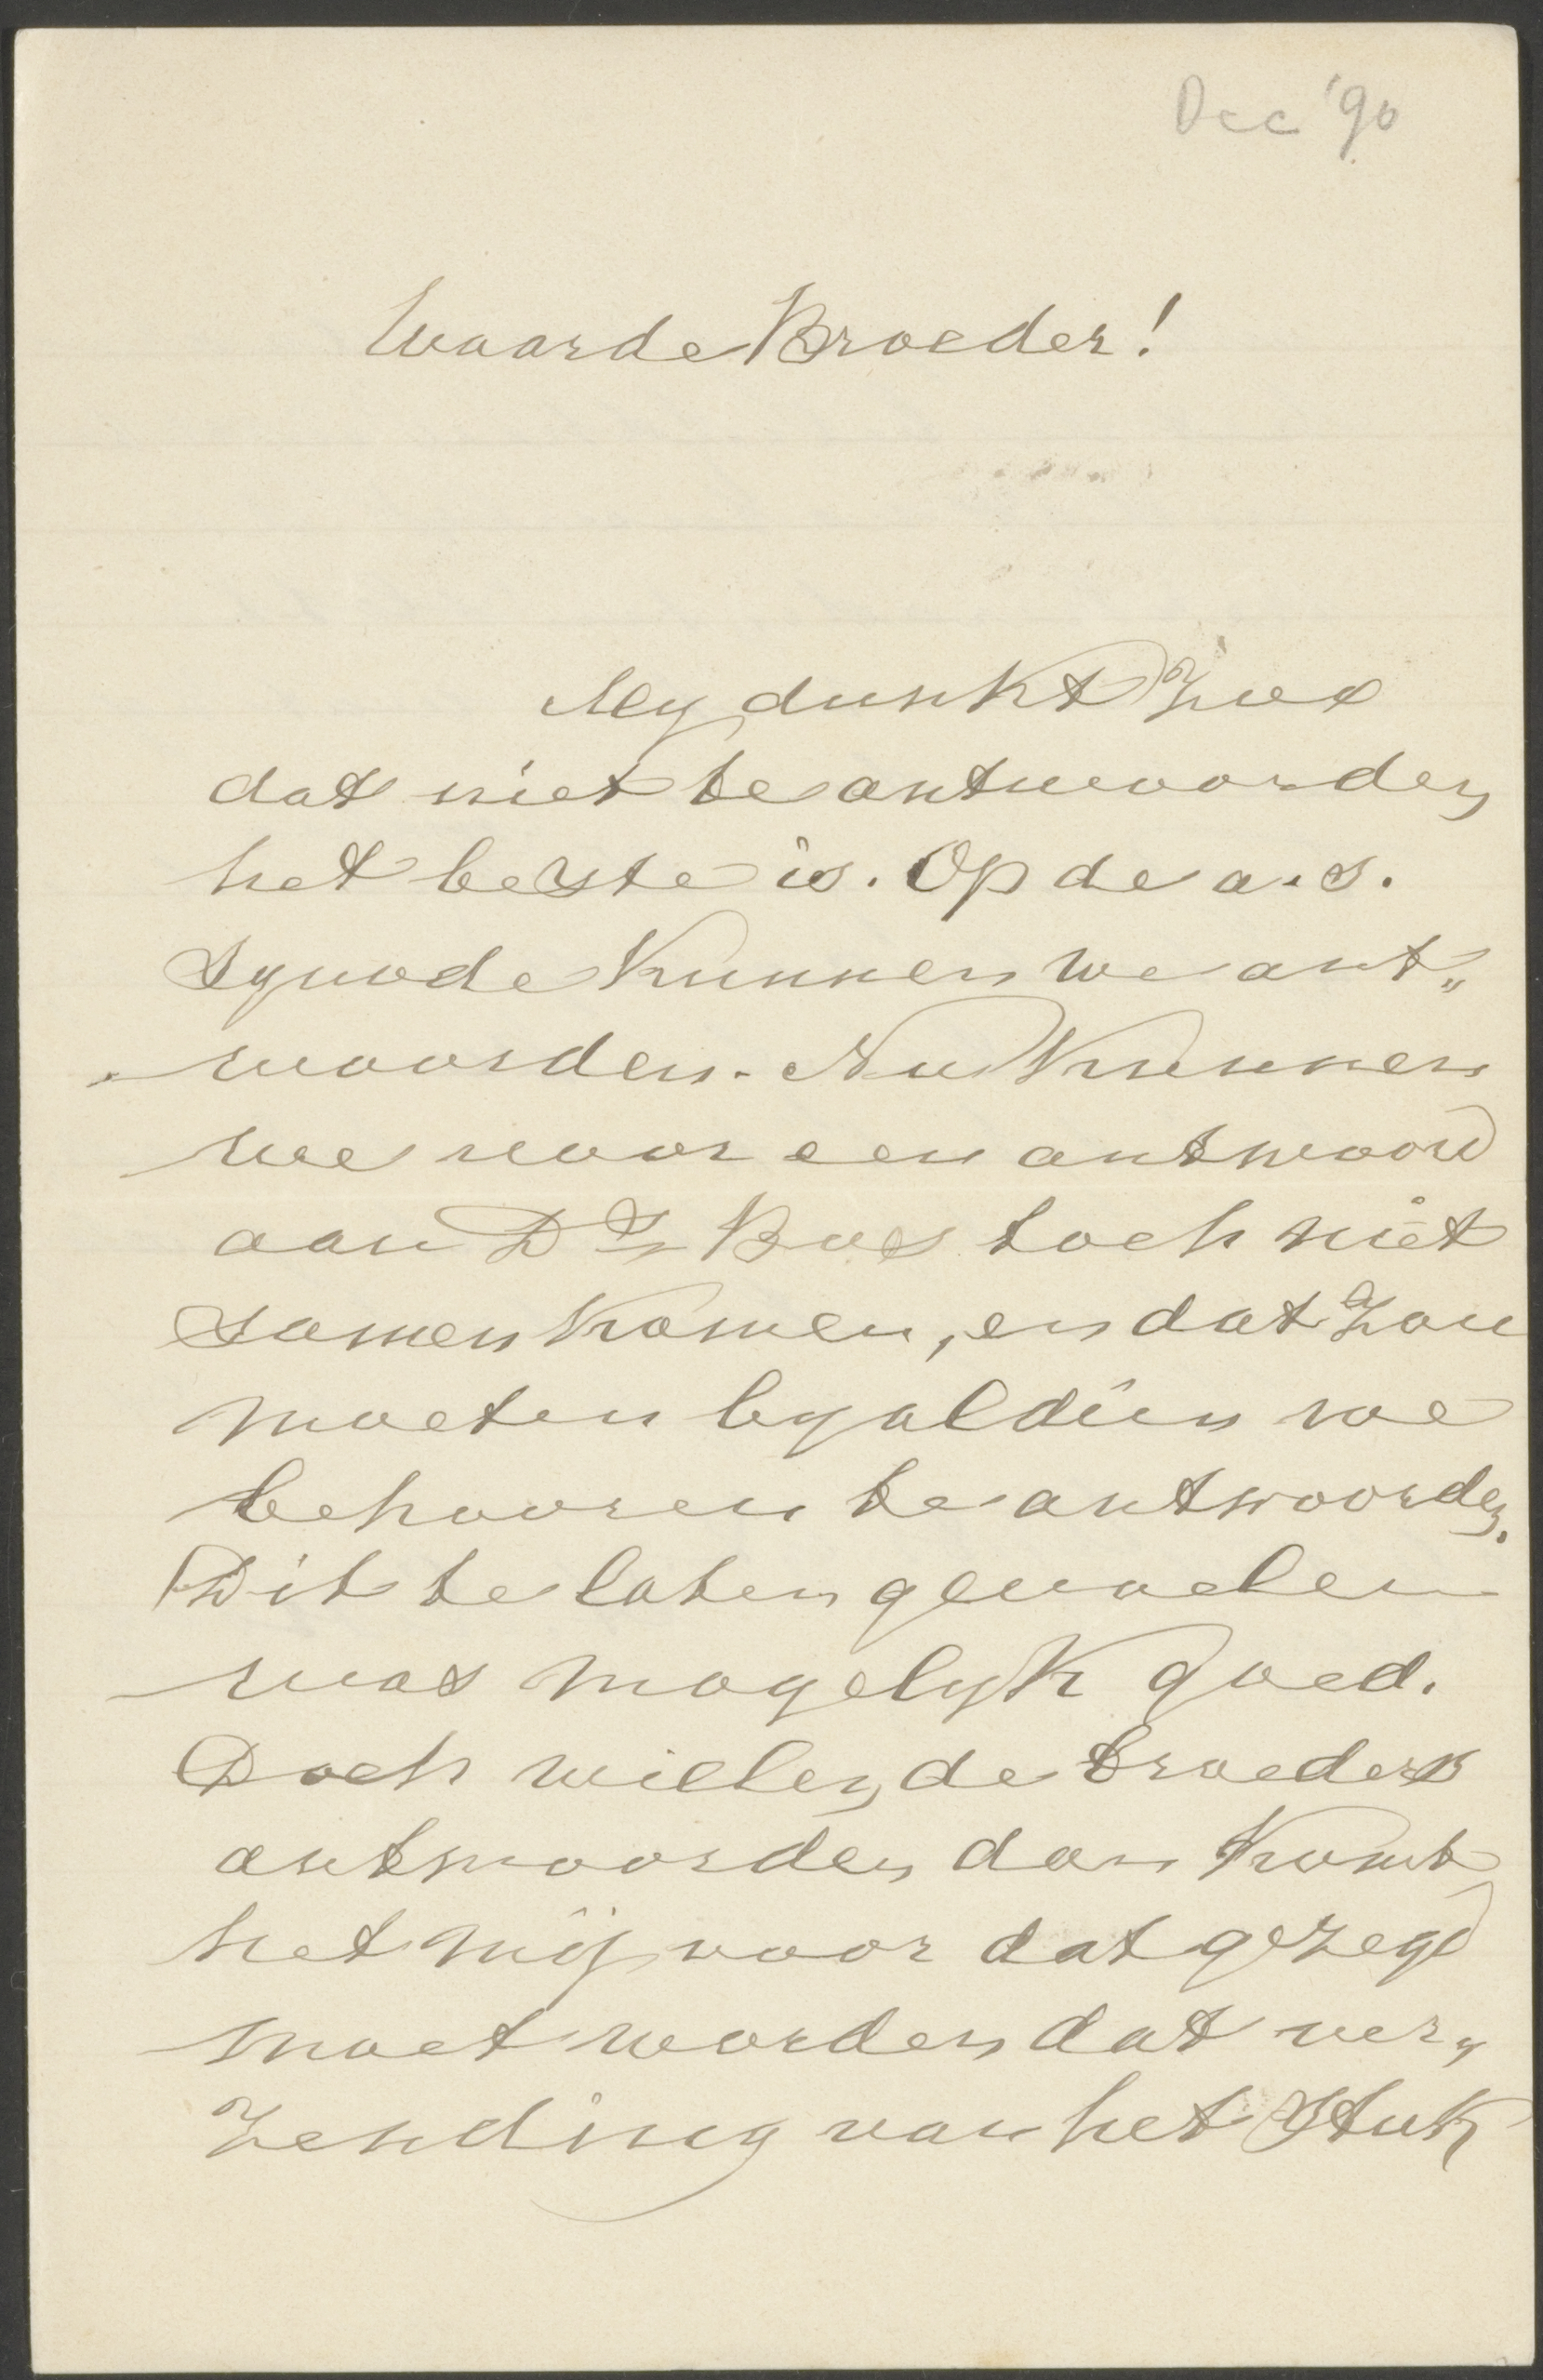 Dec '90
Waarde Broeder!
My dunkt zoo
dat niet te antwoorden
het beste is. Op de a.s.
Synode kunnen we ant„
woorden. Nu kunnen
we voor een antwoord
aan Ds Bos toch niet
samen komen, en dat zou
moeten byaldien we
behooren te antwoorden.
Dit te laten gevoelen
was mogelyk goed.
Doch willen de broeders
antwoorden dan komt
het mij voor dat gezegd
moet worden dat ver„
zending van het stuk